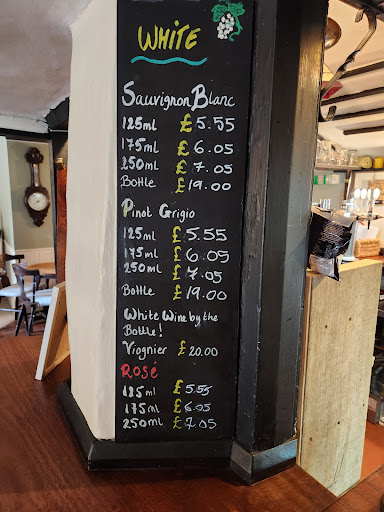 WHITE
Sauvignon Blanc
125ml £5.55
175ml £6.05
250ml £7.05
Bottle £19.00
Pinot Grigio
125ml £5.55
175ml £6.05
250ml £7.05
Bottle £19.00
White Wine by the
Bottle!
Viognier £20.00
ROSÉ
125ml £5.55
175ml £6.05
250ml £7.05